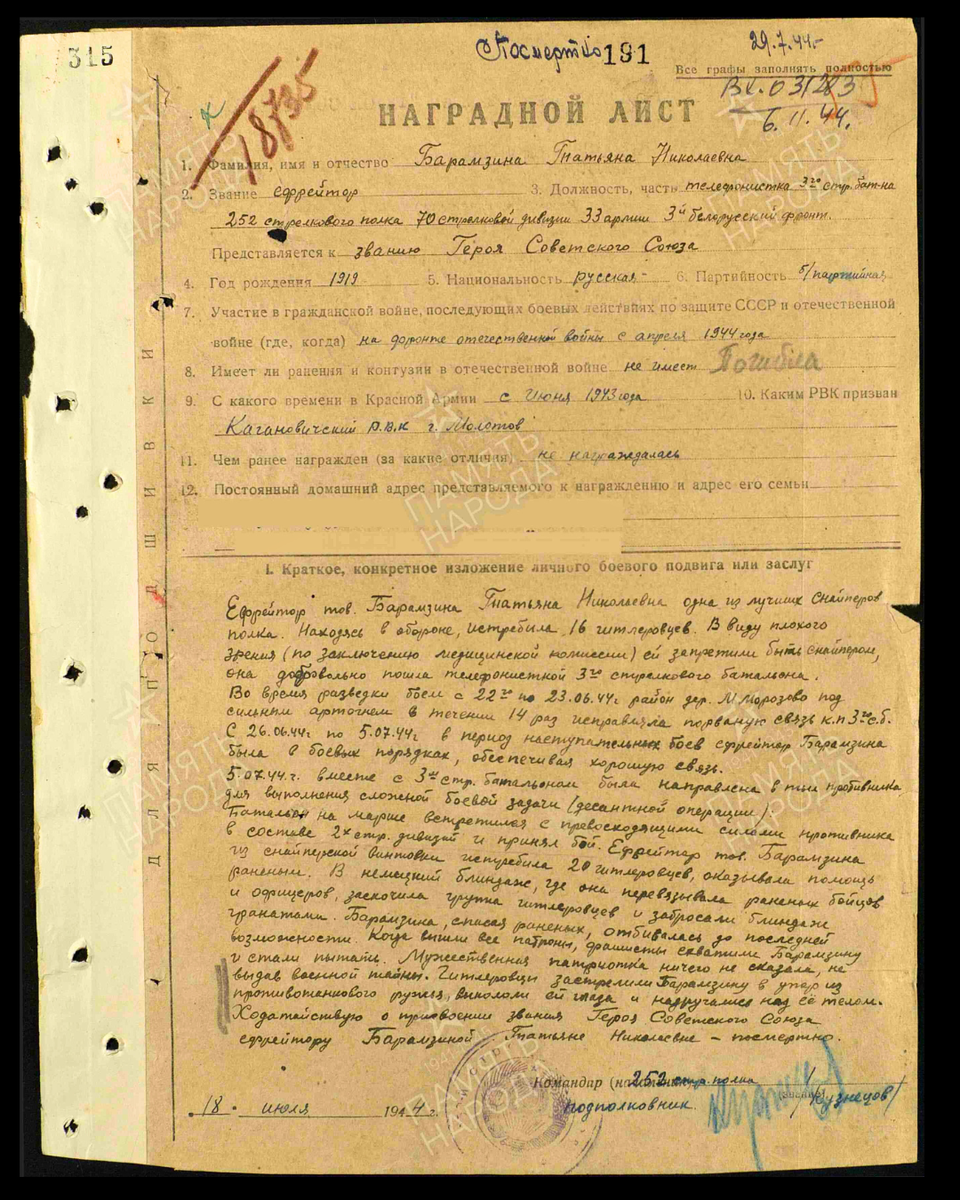 315
Посмертно 191
29.7.44.
Все графы заполнять полностью
Вх. 031283
6.11.44.
18735
НАГРАДНОЙ ЛИСТ
1. Фамилия, имя и отчество Барамзина Татьяна Николаевна
2. Звание ефрейтор 3. Должность, часть телефонистка 3го стр. бат-на
252 стрелкового полка 70 стрелковой дивизии 33 армии 3й белорусский фронт.
Представляется к званию Героя Советского Союза
4. Год рождения 1919 5. Национальность русская 6. Партийность б/партийная
7. Участие в гражданской войне, последующих боевых действиях по защите СССР и отечественной
войне (где, когда) на фронте отечественной войны с апреля 1944 года
8. Имеет ли ранения и контузии в отечественной войне не имеет Погибла
9. С какого времени в Красной Армии с Июня 1943 года 10. Каким РВК призван
Кагановичский Р.В.К г. Молотов
11. Чем ранее награжден (за какие отличия) не награждалась
12. Постоянный домашний адрес представляемого к награждению и адрес его семьи
ДЛЯ ПОДШИВКИ
I. Краткое, конкретное изложение личного боевого подвига или заслуг
Ефрейтор тов. Барамзина Татьяна Николаевна одна из лучших снайперов
полка. Находясь в обороне, истребила 16 гитлеровцев. В виду плохого
зрения (по заключению медицинской комиссии) ей запретили быть снайпером,
она добровольно пошла телефонисткой 3го стрелкового батальона.
Во время разведки боем с 22го по 23.06.44г район дер. М. Морозово под
сильным артогнем в течении 14 раз исправляла порваную связь к.п 3го с.б.
С 26.06.44г по 5.07.44г в период наступательных боев ефрейтор Барамзина
была в боевых порядках, обеспечивая хорошую связь.
5.07.44.г. вместе с 3м стр. батальоном была направлена в тыл противника
для выполнения сложной боевой задачи (десантной операции).
Батальон на марше встретился с превосходящими силами противника
в составе 2х стр. дивизий и принял бой. Ефрейтор тов. Барамзина
из снайперской винтовки истребила 20 гитлеровцев, оказывала помощь
раненым. В немецкий блиндаж, где она перевязывала раненых бойцов
и офицеров, заскочила группа гитлеровцев и забросали блиндаж
гранатами. Барамзина, спасая раненых, отбивалась до последней
возможности. Когда вышли все патроны, фашисты схватили Барамзину
и стали пытать. Мужественная патриотка ничего не сказала, не
выдав военной тайны. Гитлеровцы застрелили Барамзину в упор из
противотанкового ружья, выкололи ей глаза и надругались над её телом.
Ходатайствую о присвоении звания Героя Советского Союза
ефрейтору Барамзиной Татьяне Николаевне – посмертно.
Командир 252 стр. полка
подполковник /Кузнецов/
18 июля 1944 г.
315
ПАМЯТЬ НАРОДА